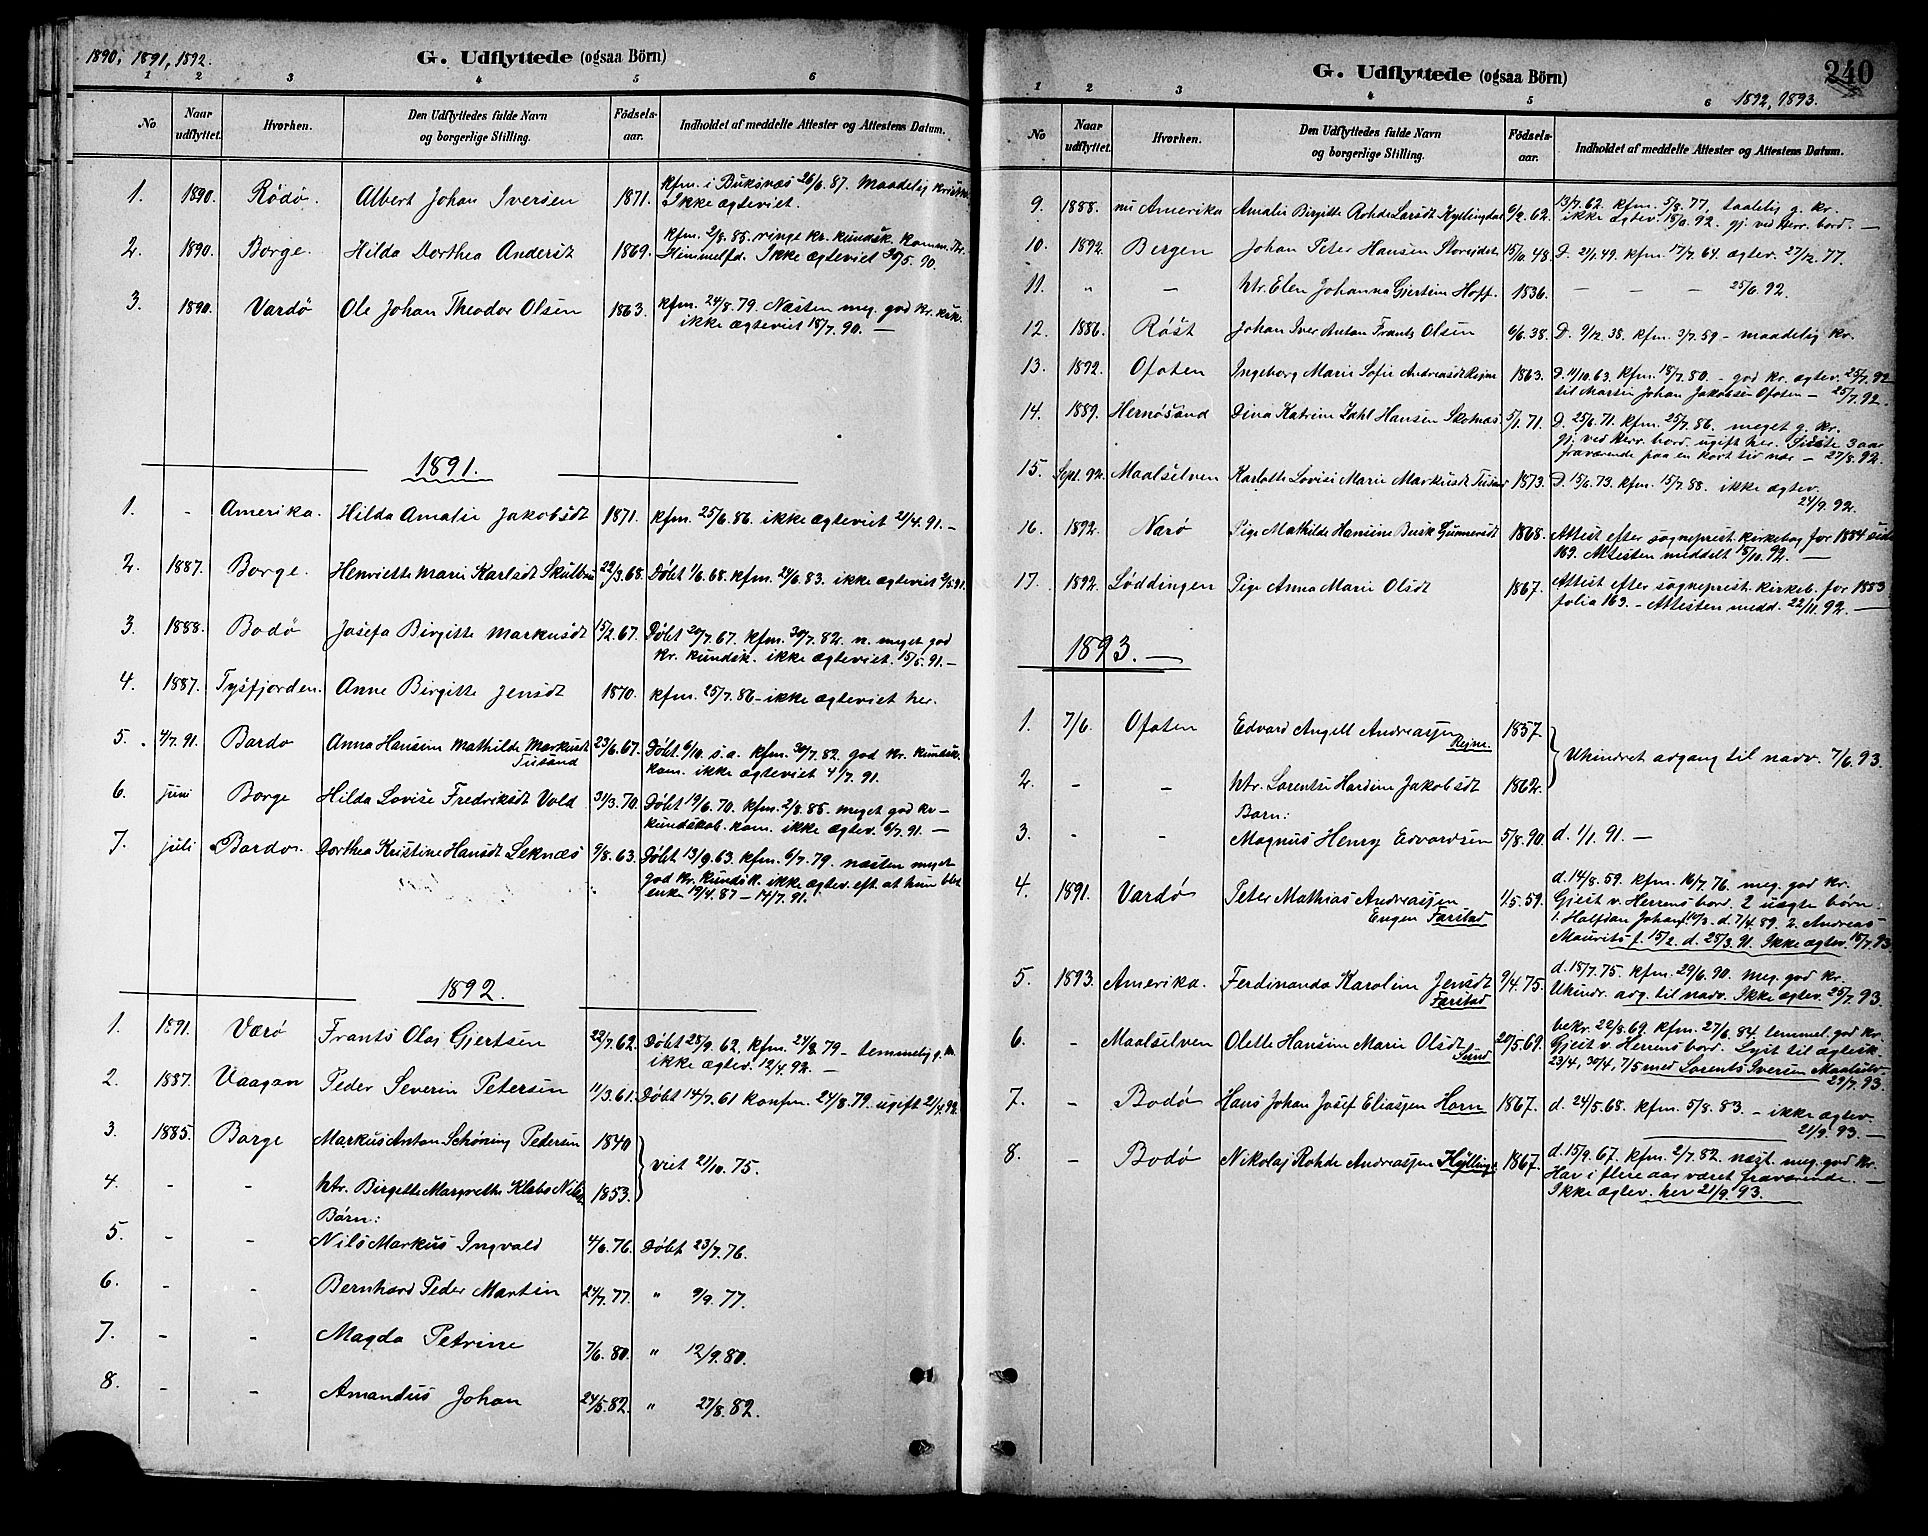 1890, 1891, 1892.
G. Udflyttede (ogsaa Börn)
1 2 3 4 5 6
No Naar udflyttet. Hvorhen. Den Udflyttedes fulde Navn og borgerlige Stilling. Födsels-aar. Indholdet af meddelte Attester og Attestens Datum.
1. 1890. Rödö. Albert Johan Iversen 1871. kfm. i Buksnæs 26/6 87. Maadelig
Ikke ægteviet.
2. 1890. Borge. Hilda Dorthea Andersdt 1869. kfm. 2/8. 85. ringe kr. kundsk.
Himmelfd. Ikke ægteviet 30/5. 90.
3. 1890. Vardö Ole Johan Theodor Olsen 1863. kfm. 24/8. 79. Næsten meg. god kr.
ikke ægteviet 18/7. 90. —
1891.
1. - Amerika. Hilda Amalie Jakobsdt 1871. kfm. 25/6. 86. ikke ægteviet 21/4. 91. —
2. 1887. Borge. Henriette Marie Karlsdt 22/3. 68. Döbt 1/6. 68. kfm. 24/6. 83. ikke ægteviet
3. 1888. Bodö Josefa Birgitte Markusdt 15/2. 67. Döbt 20/7. 67. kfm. 30/7. 82. n. meget god
kr. kundsk. ikke ægteviet. 15/5. 91. —
4. 1887. Tysfjorden. Anne Birgitte Jensdt 1870. kfm. 25/7. 86 - ikke ægteviet her.
5. 4/7. 91. Bardo Anna Hansine Mathilde Markusdt 23/6. 67. Döbt 6/10. s.a. kfm. 30/7. 82. god kr. kundsk.
Tusand kom. ikke ægteviet 4/7. 91.
6. juni Borge Hilda Lovise Fredriksdt Vold 31/3. 70. Döbt 19/6. 70. kfm. 2/8. 85. meget god kr-
kundskab. kom. ikke ægtev. 6/7. 91. —
7. juli Bardo. Dorthea Kristine Hansdt Leknæs 9/8. 63. Döbt 13/9. 63. kfm. 6/7. 79. næsten meget
god kr. kundsk. ikke ægtev. eft. at hun blev
enke 19/4. 87 — 14/7. 91.
1892.
1. 1891. Værö Frants Olaj Gjertsen 22/7. 62. Döbt 28/9. 62. kfm. 24/8. 79 - temmelig g. kr.
ikke ægtev. 12/4. 92. —
2. 1887. Vaagan Peder Severin Petersen 11/3. 61. Döbt 14/7. 61 konfm. 24/8. 79. ugift 21/4. 92.
3. 1885. Borge Markus Anton Schöning Pedersen 1840
viet 21/10. 75.
4. - - htr. Birgitte Margrethe Klabo 1853.
Börn:
5. - - Nils Markus Ingvald 4/6. 76. Döbt 23/7. 76.
6. - - Bernhard Peder Martin 24/7. 77. " 9/9. 77.
7. - - Magda Petrine 7/6. 80. " 12/9. 80.
8. - - Amandus Johan 24/5. 82. " 27/8. 82.
G. Udflyttede (ogsaa Börn)
240
1892, 1893.
1 2 3 4 5 6
No Naar udflyttet. Hvorhen. Den Udflyttedes fulde Navn og borgerlige Stilling. Födsels-aar. Indholdet af meddelte Attester og Attestens Datum.
9. 1888. nu Amerika Amalie Birgitte Rohde Larsdt Kyllingdal 6/2. 62. 13/7. 62. kfm. 5/8. 77, taalelig g. kr.
ikke ægtev. 18/0. 92. gj. ved Herr. bord. —
10. 1892. Bergen Johan Peter Hansen 15/10. 48. D. 2/1. 49. kfm. 17/7. 64. ægtev. 27/12. 77.
11. " - htr. Elen Johanna Gjertine Hoff. 1836. - - - 25/6. 92.
12. 1886. Røst Johan Iver Anton Frants Olsen 6/6. 38. D. 9/12. 38. kfm. 3/7. 59 - maadelig kr.
13. 1892. Ofoten Ingeborg Marie Sofie Andreasdt Rejne 1863. D. 11/10. 63. kfm. 18/7. 80. - god kr. ægtev. 25/7. 92
til Martin Johan Jakobsen Ofoten — 25/7. 92.
14. 1889. Hernösand Dina Katrine Zahl Hansen Skotnæs 5/1. 71. D. 25/6. 71. kfm. 25/7. 86. meget g. kr.
gj. ved Herr. bord. ugift her. Sidste 3 aar
fraværende paa en kort tid nær — 27/8. 92.
15. Sept. 92. Maalselven Karlotte Lovise Marie Markusdt Tusand 1873. D. 15/6. 73. kfm. 15/7. 88. ikke ægtev.
24/9. 92.
16. 1892. Narö Pige Mathilde Hansine Busk Gunnersdt 1868. Attest efter sogneprest. kirkebog for 1884 side
169. Attesten meddelt 18/10. 92. —
17. 1892. Løddingen Pige Anna Marie Olsdt 1867. Attest efter sogneprest. kirkeb. for 1883
folia 163. - Attesten medd. 22/11. 92. —
1893. —
1. 7/6. Ofoten Edvard Angell Andreassen 1857.
Rejne.
Uhindret adgang til nadv. 7/6. 93.
2. - - htr. Lorentse Hardine Jakobsdt 1862.
Barn:
3. - - Magnus Henry Edvardsen 5/8. 90. d. 1/1. 91. —
4. 1891. Vardö Peter Mathias Andreassen 1/5. 59. d. 14/8. 59. kfm. 16/7. 76. meg. god kr.
Eugen Farstad Gjest v. Herrens bord. 2 uægte börn:
1. Halfdan Johan f. 10/3. d. 7/4. 89. 2. Andreas
Maurits f. 15/2. d. 25/3. 91. Ikke ægtev. 15/7. 93
5. 1893. Amerika. Ferdinanda Karoline Jensdt 9/4. 75. d. 18/7. 75. kfm. 29/6. 90. meg. god kr.
Farstad Uhindr. adg. til nadv. Ikke ægtev. 25/7. 93.
6. - Maalselven Olette Hansine Marie Olsdt 20/5. 69. bekr. 22/8. 69. kfm. 27/6. 84. temmel. god kr.
Sund Gjest v. Herrens bord. Lyst til ægtesk.
23/4, 30/4, 7/5 med Lorents Iversen Maalselv.
29/7. 93.
7. - Bodö Hans Johan Josef Eliassen Horn 1867. d. 24/5. 68. kfm. 5/8. 83. - ikke ægtev.
21/9. 93. —
8. - Bodö Nikolaj Rohde Andreassen Kylling: 1867. d. 15/9. 67. kfm. 2/7. 82. næst. meg. god kr.
Har i flere aar været fraværende. —
Ikke ægtev. her 21/9. 93.